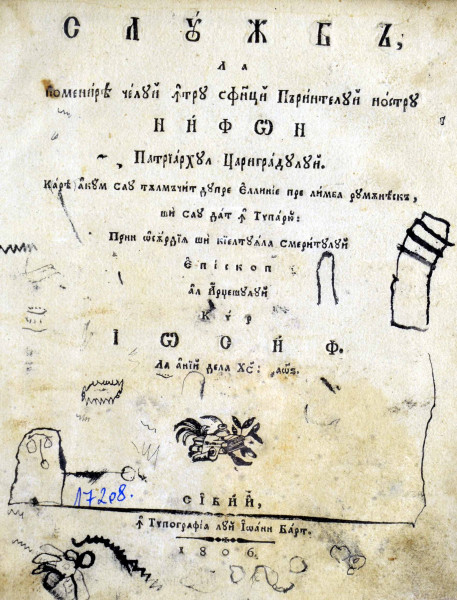 СЛꙋ́ЖБЪ,
ЛА
Поменирѣ че́луй ꙟ҆тру сфи́нций Пъри́нтелуй но́стру
НИ́ФѠН
Патрїа́рхул Цариградулуй.
Ка́рѣ аку́м сау тълмъчи́т дупре Еллиніе пре ли́мба румѫнѣ́скъ,
ши сау да́т ꙟ҆ Типа́рю:
При́н ѡ҆сѫ́рдїѧ ши кїелтуѧ́ла смери́тулуй
Є҆пі́скоп
ал А́рџешулуй
Кѷр
ІѠСИ́Ф.
Ла а́нїй дела Хс҃: ҂аѡ҃ѕ.
17208.
СІБІЙ,
ꙟ҆ Тѷпогра́фїа лу́й Іѡа́нн Ба́рт.
1806.